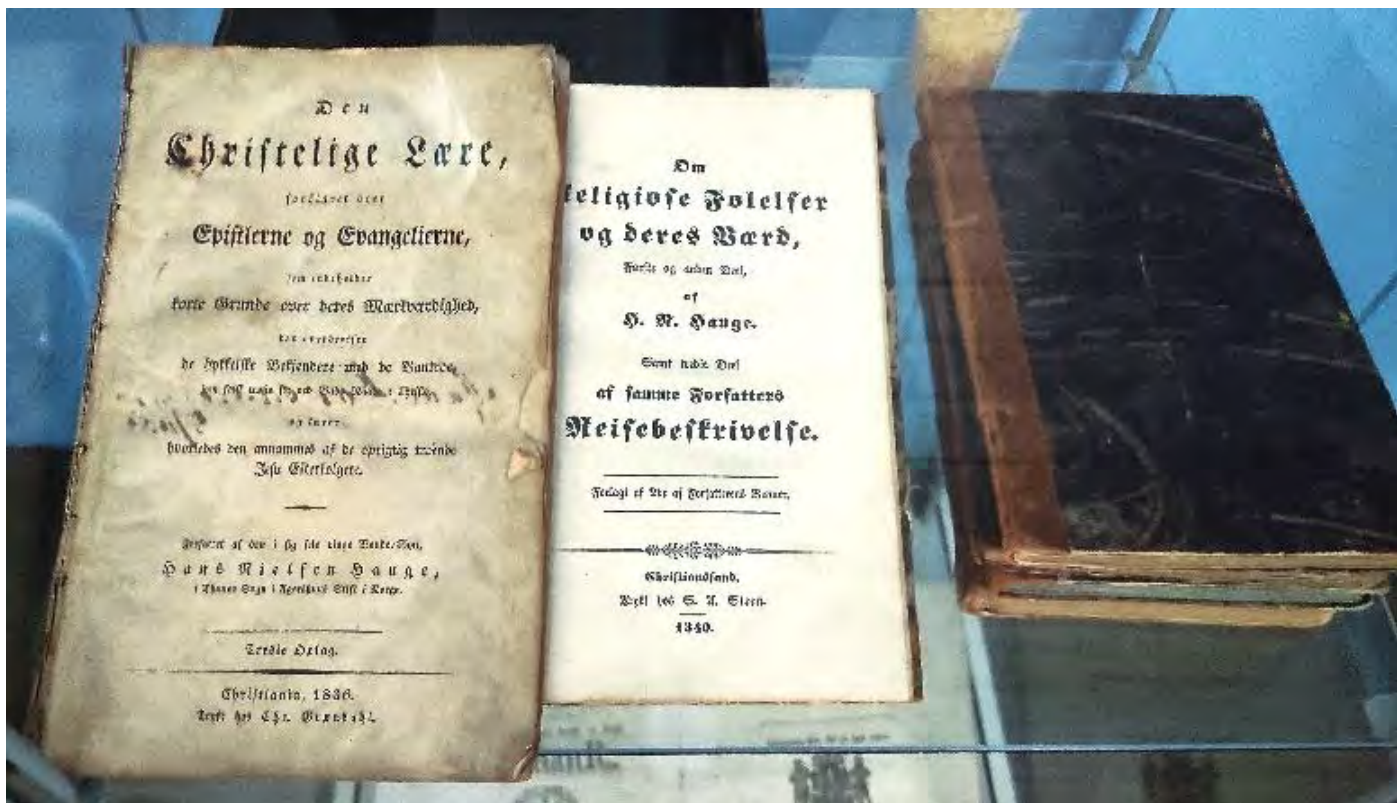 Den
Christelige Lære,
forklaret over
Epistlerne og Evangelierne,
som indeholder
korte Grunde over deres Mærkværdighed,
de hykkelske Bekjendere med de Vantroe,
og lærer,
hvorledes den annammes af de oprigtig troende
Jesu Efterfølgere.
Forfattet af den i sig selv ringe Bonde-Søn,
Hans Nielsen Hauge,
i Norge.
Tredie Oplag.
Christiania, 1836.
Trykt hos Chr. Grøndahl.
Om
eligiøse Følelser
og deres Værd,
Første og anden Deel,
af
H. N. Hauge.
Samt tredie Deel
af samme Forfatters
Reisebeskrivelse.
Forlagt af Een af Forfatterens Venner.
Christiansand.
Trykt hos S. A. Steen.
1840.